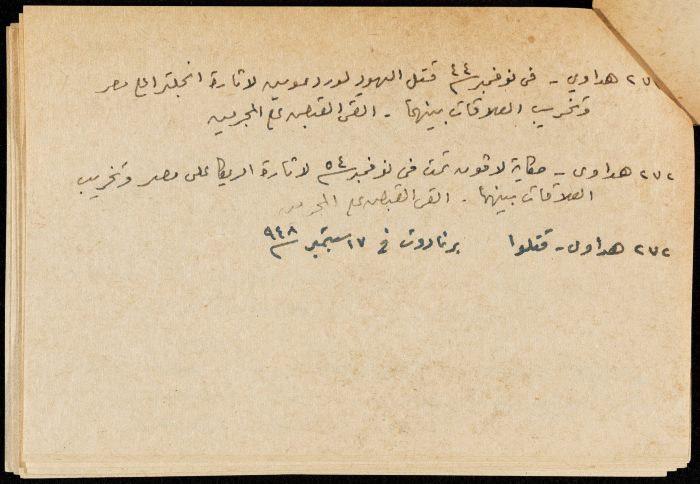 ٢٧٢ هداوي - في نوفمبر ٤٤ قتل اليهود لورد موين لاثارة انجلترا على مصر
وتخريب العلاقات بينهما - القى القبض على المجرمين
٢٧٢ هداوى - حكاية لافون تمت فى نوفمبر ٥٤ لاثارة امريكا على مصر وتخريب
العلاقات بينهما . القى القبض على المجرمين
٢٧٢ هداوى - قتلوا برنادوت في ١٧ سبتمبر ٩٤٨